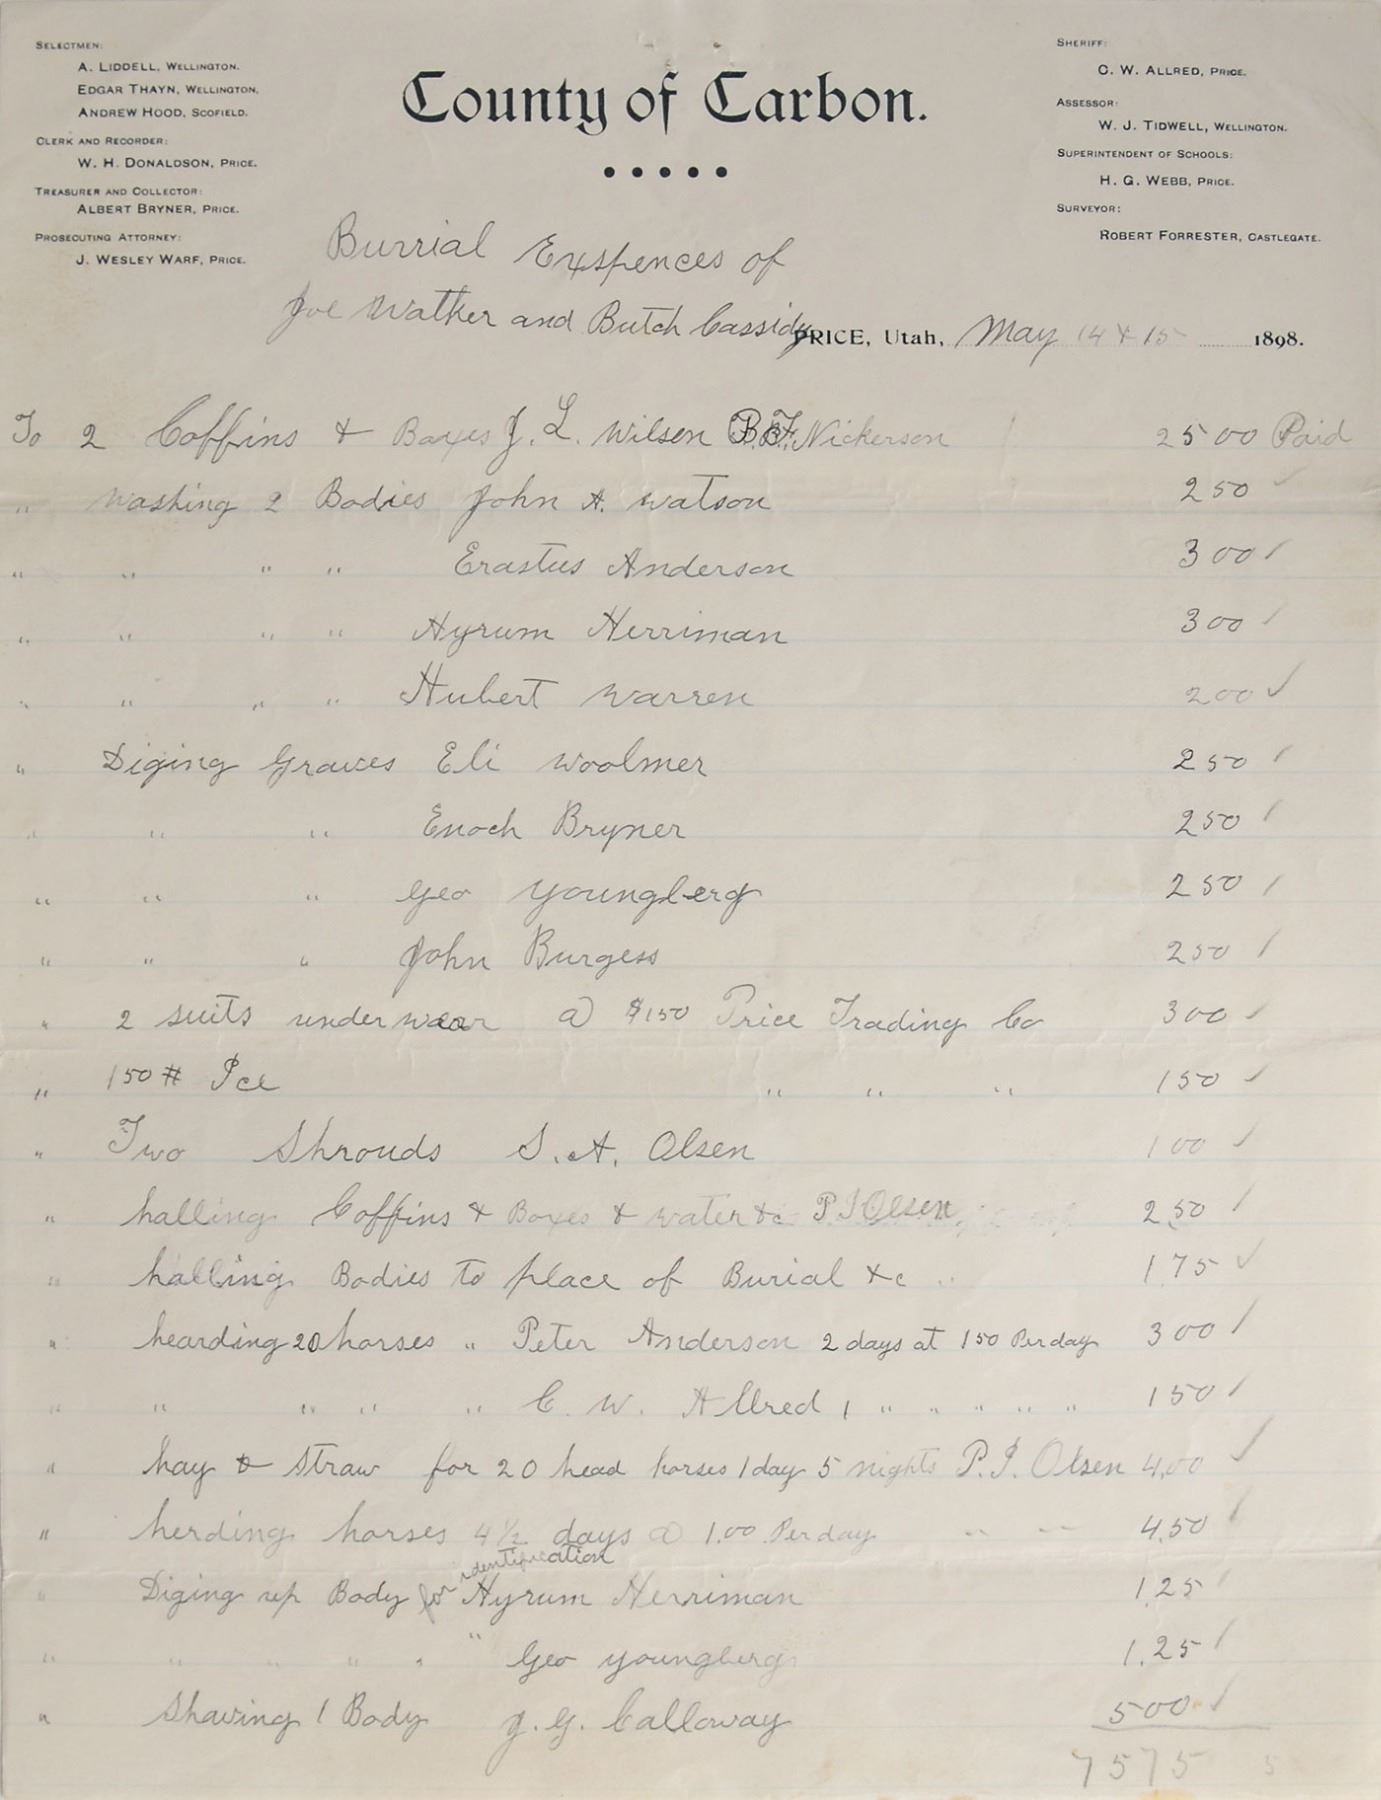 SELECTMEN:
A. LIDDELL, WELLINGTON.
EDGAR THAYN, WELLINGTON.
ANDREW HOOD, SCOFIELD.
CLERK AND RECORDER:
W. H. DONALDSON, PRICE.
TREASURER AND COLLECTOR:
ALBERT BRYNER, PRICE.
PROSECUTING ATTORNEY:
J. WESLEY WARF, PRICE.
County of Carbon.
• • • • •
SHERIFF:
C. W. ALLRED, PRICE.
ASSESSOR:
W. J. TIDWELL, WELLINGTON.
SUPERINTENDENT OF SCHOOLS:
H. G. WEBB, PRICE.
SURVEYOR:
ROBERT FORRESTER, CASTLEGATE.
Burrial Exspences of
Joe Walker and Butch Cassidy
PRICE, Utah, May 14 & 15 1898.
To 2 Coffins & Boxes J. L. Wilson B. F. Nickerson 25 00 Paid
" Washing 2 Bodies John A. Watson 2 50 ✓
" " " " Erastus Anderson 3 00 ✓
" " " " Hyrum Herriman 3 00 ✓
" " " " Hubert Warren 2 00 ✓
" Diging Graves Eli Woolmer 2 50 ✓
" " " Enoch Bryner 2 50 ✓
" " " Geo Youngberg 2 50 ✓
" " " John Burgess 2 50 ✓
" 2 suits underwear @ $1 50 Price Trading Co 3 00 ✓
" 150 # Ice " " " 1 50 ✓
" Two Shrouds S. A. Olsen 1 00 ✓
" halling Coffins & Boxes & water &c P I Olsen 2,50 ✓
" halling Bodies to place of Burial &c " 1 75 ✓
" hearding 20 horses " Peter Anderson 2 days at 1 50 Per day 3 00 ✓
" " " " " C. W. Allred 1 " " " " " 1 50 ✓
" hay & straw for 20 head horses 1 day 5 nights P. I. Olsen 4,00 ✓
" herding horses 4 ½ days @ 1.00 Per day " " 4,50 ✓
" Diging up Body for identification Hyrum Herriman 1,25 ✓
" " " " " " Geo Youngberg 1,25 ✓
" Shaving 1 Body J. G. Calloway 5 00 ✓
75 75